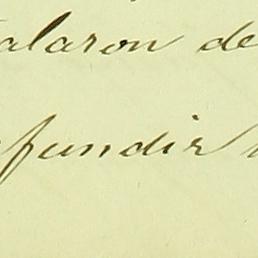 alaron de
fundir